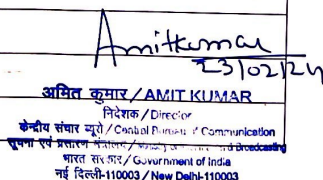 Amitkumar
23/02/24
अमित कुमार / AMIT KUMAR
निदेशक / Director
केन्द्रीय संचार ब्यूरो / Central Bureau of Communication
सूचना एवं प्रसारण मंत्रालय / and Broadcasting
भारत सरकार / Government of India
नई दिल्ली-110003 / New Delhi-110003